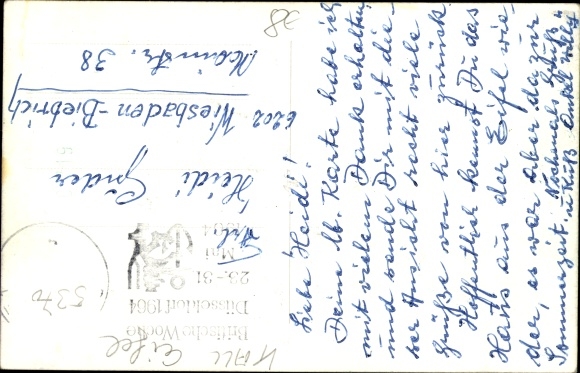 Liebe Heidi!
Deine lb. Karte habe ich
mit vielem Dank erhalten
und sende Dir mit die-
ser Ansicht recht viele
Grüße von hier zurück.
Hoffentlich kennst Du das
Haus aus der Eifel wie-
der, es war aber dazur
Sommerzeit. Nochmals Gruß
u. Kuß Onkel Willy
Frl.
Heidi Gröder
6202 Wiesbaden-Biebrich
Mainstr. 38
38
Britische Woche
Düsseldorf 1964
23.-31
Mai
1964
5370
Kall
Eifel